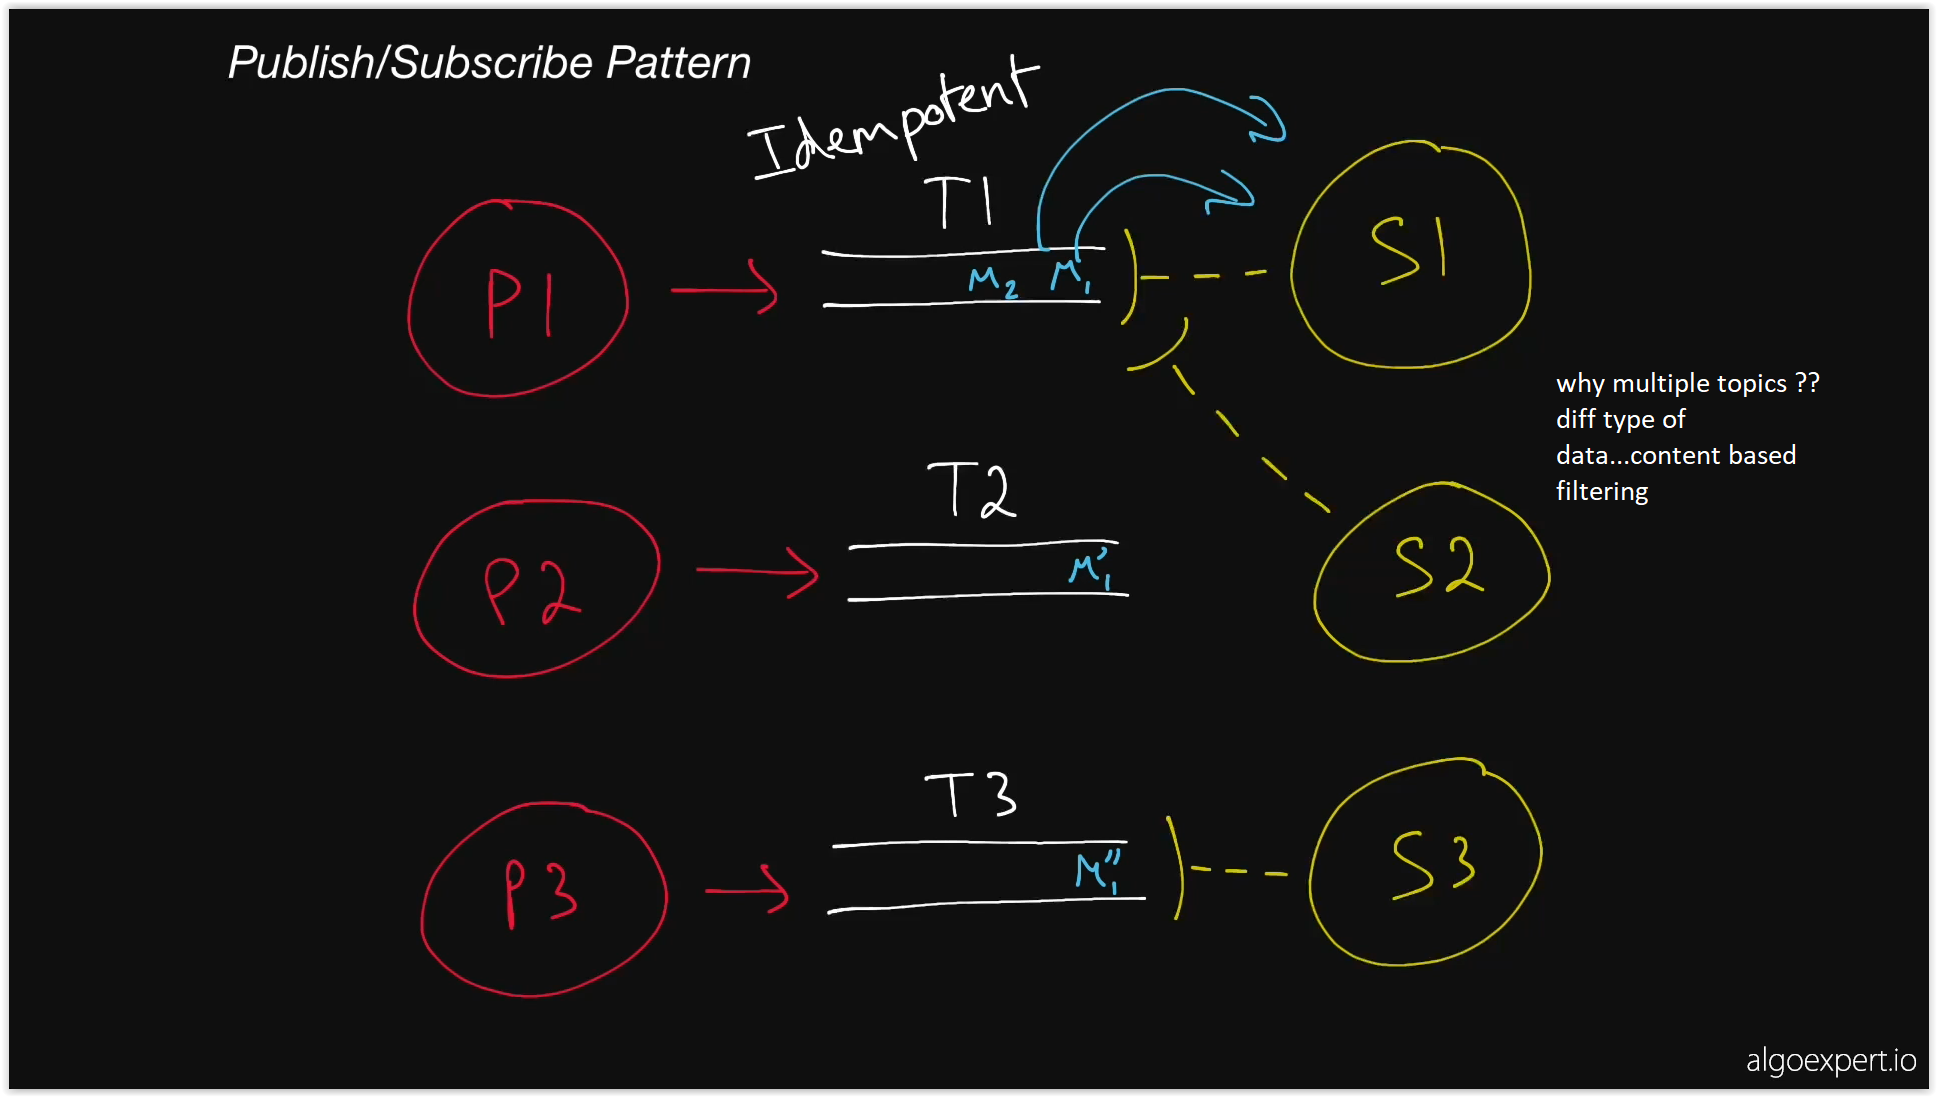 Publish/Subscribe Pattern
Idempotent
T1
P1
M2 M1
S1
why multiple topics ??
diff type of
data...content based
filtering
T2
P2
M'1
S2
T3
P3
M''1
S3
algoexpert.io